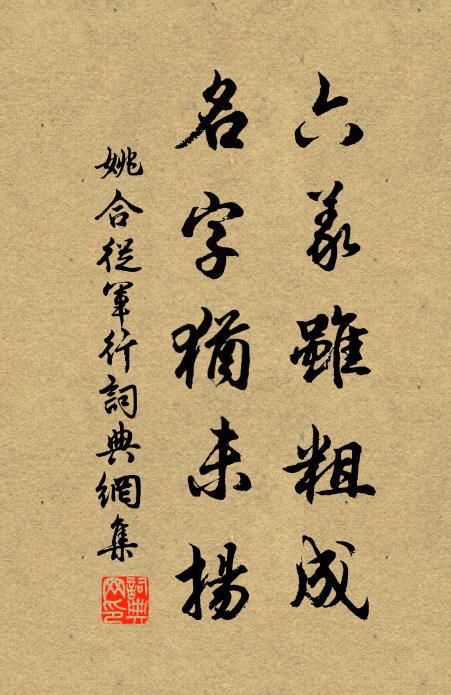 六義雖粗成
名字猶未揚
姚合從軍行詞典網集
詞典網印